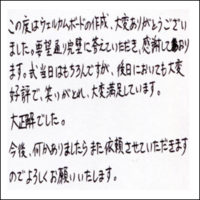 この度はウェルカムボードの作成、大変ありがとうござい
ました。要望通り完璧に答えていただき、感謝しており
ます。式当日はもちろんですが、後日においても大変
好評で、笑いがとれ、大変満足しています。
大正解でした。
今後、何かありましたらまた依頼させていただきます
のでよろしくお願いいたします。